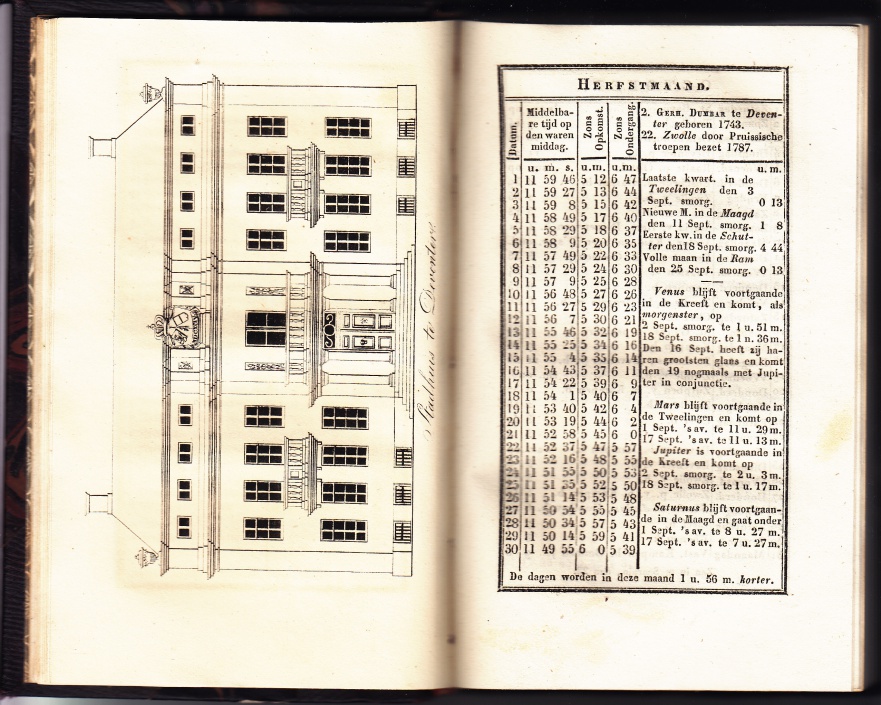 Stadhuis te Deventer.
HERFSTMAAND.
Datum.
Middelbare tijd op den waren middag.
Zons Opkomst.
Zons Ondergang.
u. m. s. u. m. u. m.
1 11 59 46 5 12 6 47
2 11 59 27 5 13 6 44
3 11 59 8 5 15 6 42
4 11 58 49 5 17 6 40
5 11 58 29 5 18 6 37
6 11 58 9 5 20 6 35
7 11 57 49 5 22 6 33
8 11 57 29 5 24 6 30
9 11 57 9 5 25 6 28
10 11 56 48 5 27 6 26
11 11 56 27 5 29 6 23
12 11 56 7 5 30 6 21
13 11 55 46 5 32 6 19
14 11 55 25 5 34 6 16
15 11 55 4 5 35 6 14
16 11 54 43 5 37 6 11
17 11 54 22 5 39 6 9
18 11 54 1 5 40 6 7
19 11 53 40 5 42 6 4
20 11 53 19 5 44 6 2
21 11 52 58 5 45 6 0
22 11 52 37 5 47 5 57
23 11 52 16 5 48 5 55
24 11 51 55 5 50 5 53
25 11 51 35 5 52 5 50
26 11 51 14 5 53 5 48
27 11 50 54 5 55 5 45
28 11 50 34 5 57 5 43
29 11 50 14 5 59 5 41
30 11 49 55 6 0 5 39
2. GERH. DUMBAR te Deven-
ter geboren 1743.
22. Zwolle door Pruissische
troepen bezet 1787.
u. m.
Laatste kwart. in de
Tweelingen den 3
Sept. smorg. 0 13
Nieuwe M. in de Maagd
den 11 Sept. smorg. 1 8
Eerste kw. in de Schut-
ter den 18 Sept. smorg. 4 44
Volle maan in de Ram
den 25 Sept. smorg. 0 13
Venus blijft voortgaande
in de Kreeft en komt, als
morgenster, op
2 Sept. smorg. te 1 u. 51 m.
18 Sept. smorg. te 1 u. 36 m.
Den 16 Sept. heeft zij ha-
ren grootsten glans en komt
den 19 nogmaals met Jupi-
ter in conjunctie.
Mars blijft voortgaande in
de Tweelingen en komt op
1 Sept. 's av. te 11 u. 29 m.
17 Sept. 's av. te 11 u. 13 m.
Jupiter is voortgaande in
de Kreeft en komt op
2 Sept. smorg. te 2 u. 3 m.
18 Sept. smorg. te 1 u. 17 m.
Saturnus blijft voortgaan-
de in de Maagd en gaat onder
1 Sept. 's av. te 8 u. 27 m.
17 Sept. 's av. te 7 u. 27 m.
De dagen worden in deze maand 1 u. 56 m. korter.